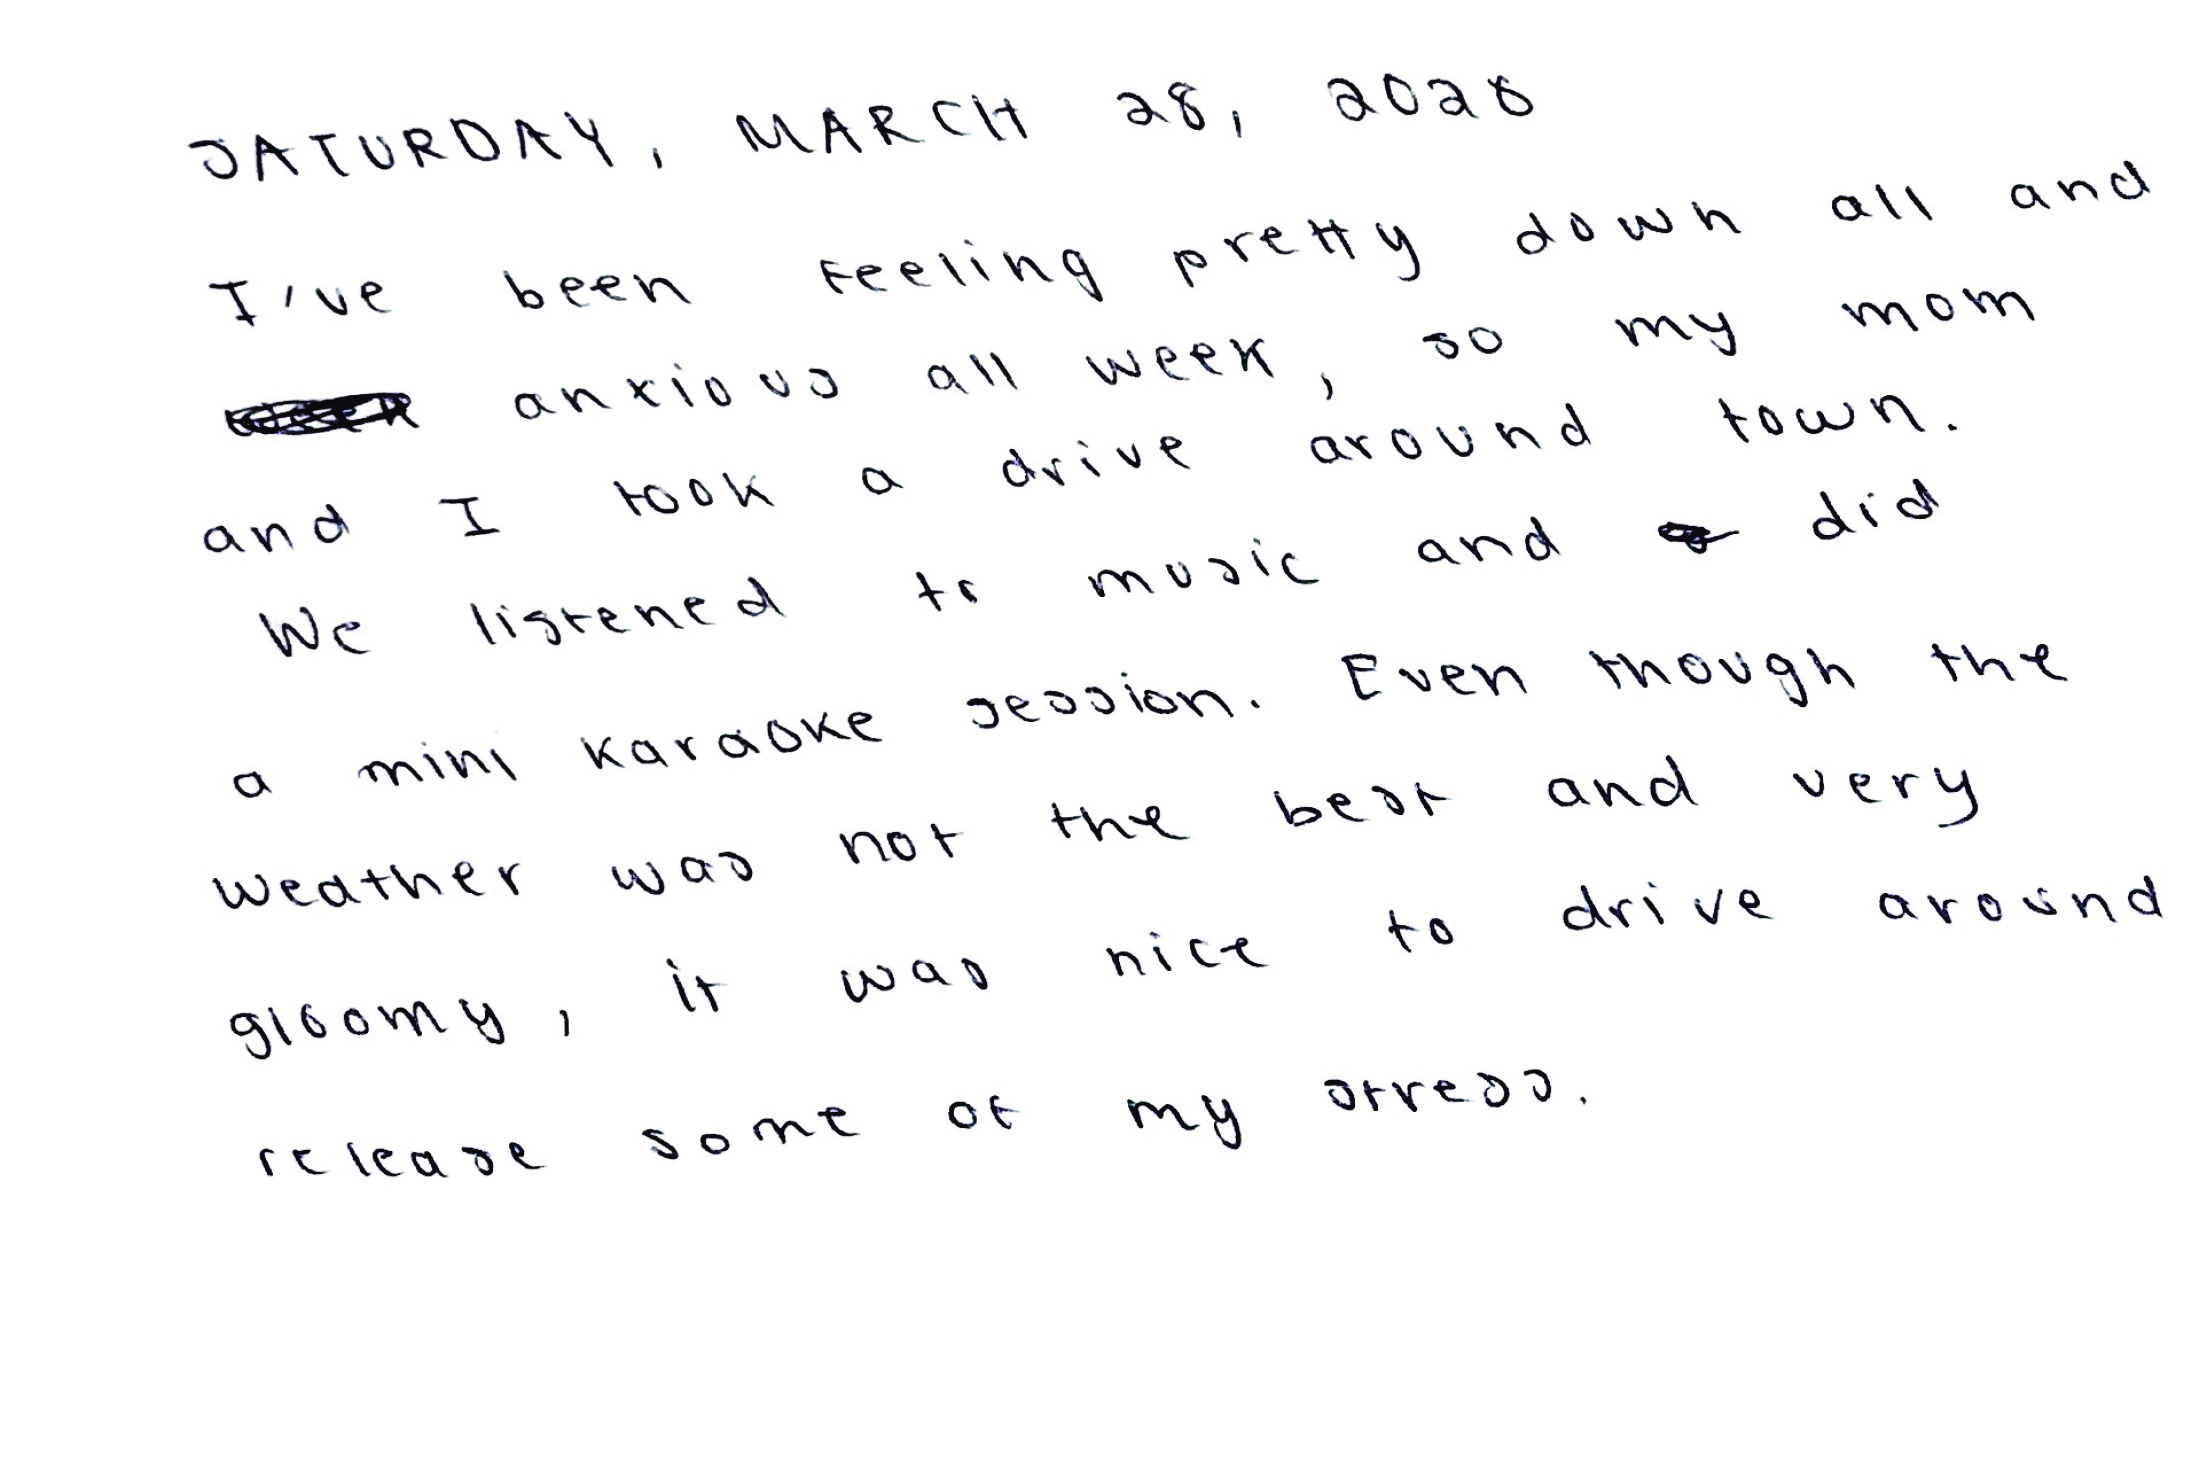 SATURDAY, MARCH 28, 2026
I've been feeling pretty down all and
anxious all week, so my mom
and I took a drive around town.
We listened to music and did
a mini karaoke session. Even though the
weather was not the best and very
gloomy, it was nice to drive around
release some of my stress.